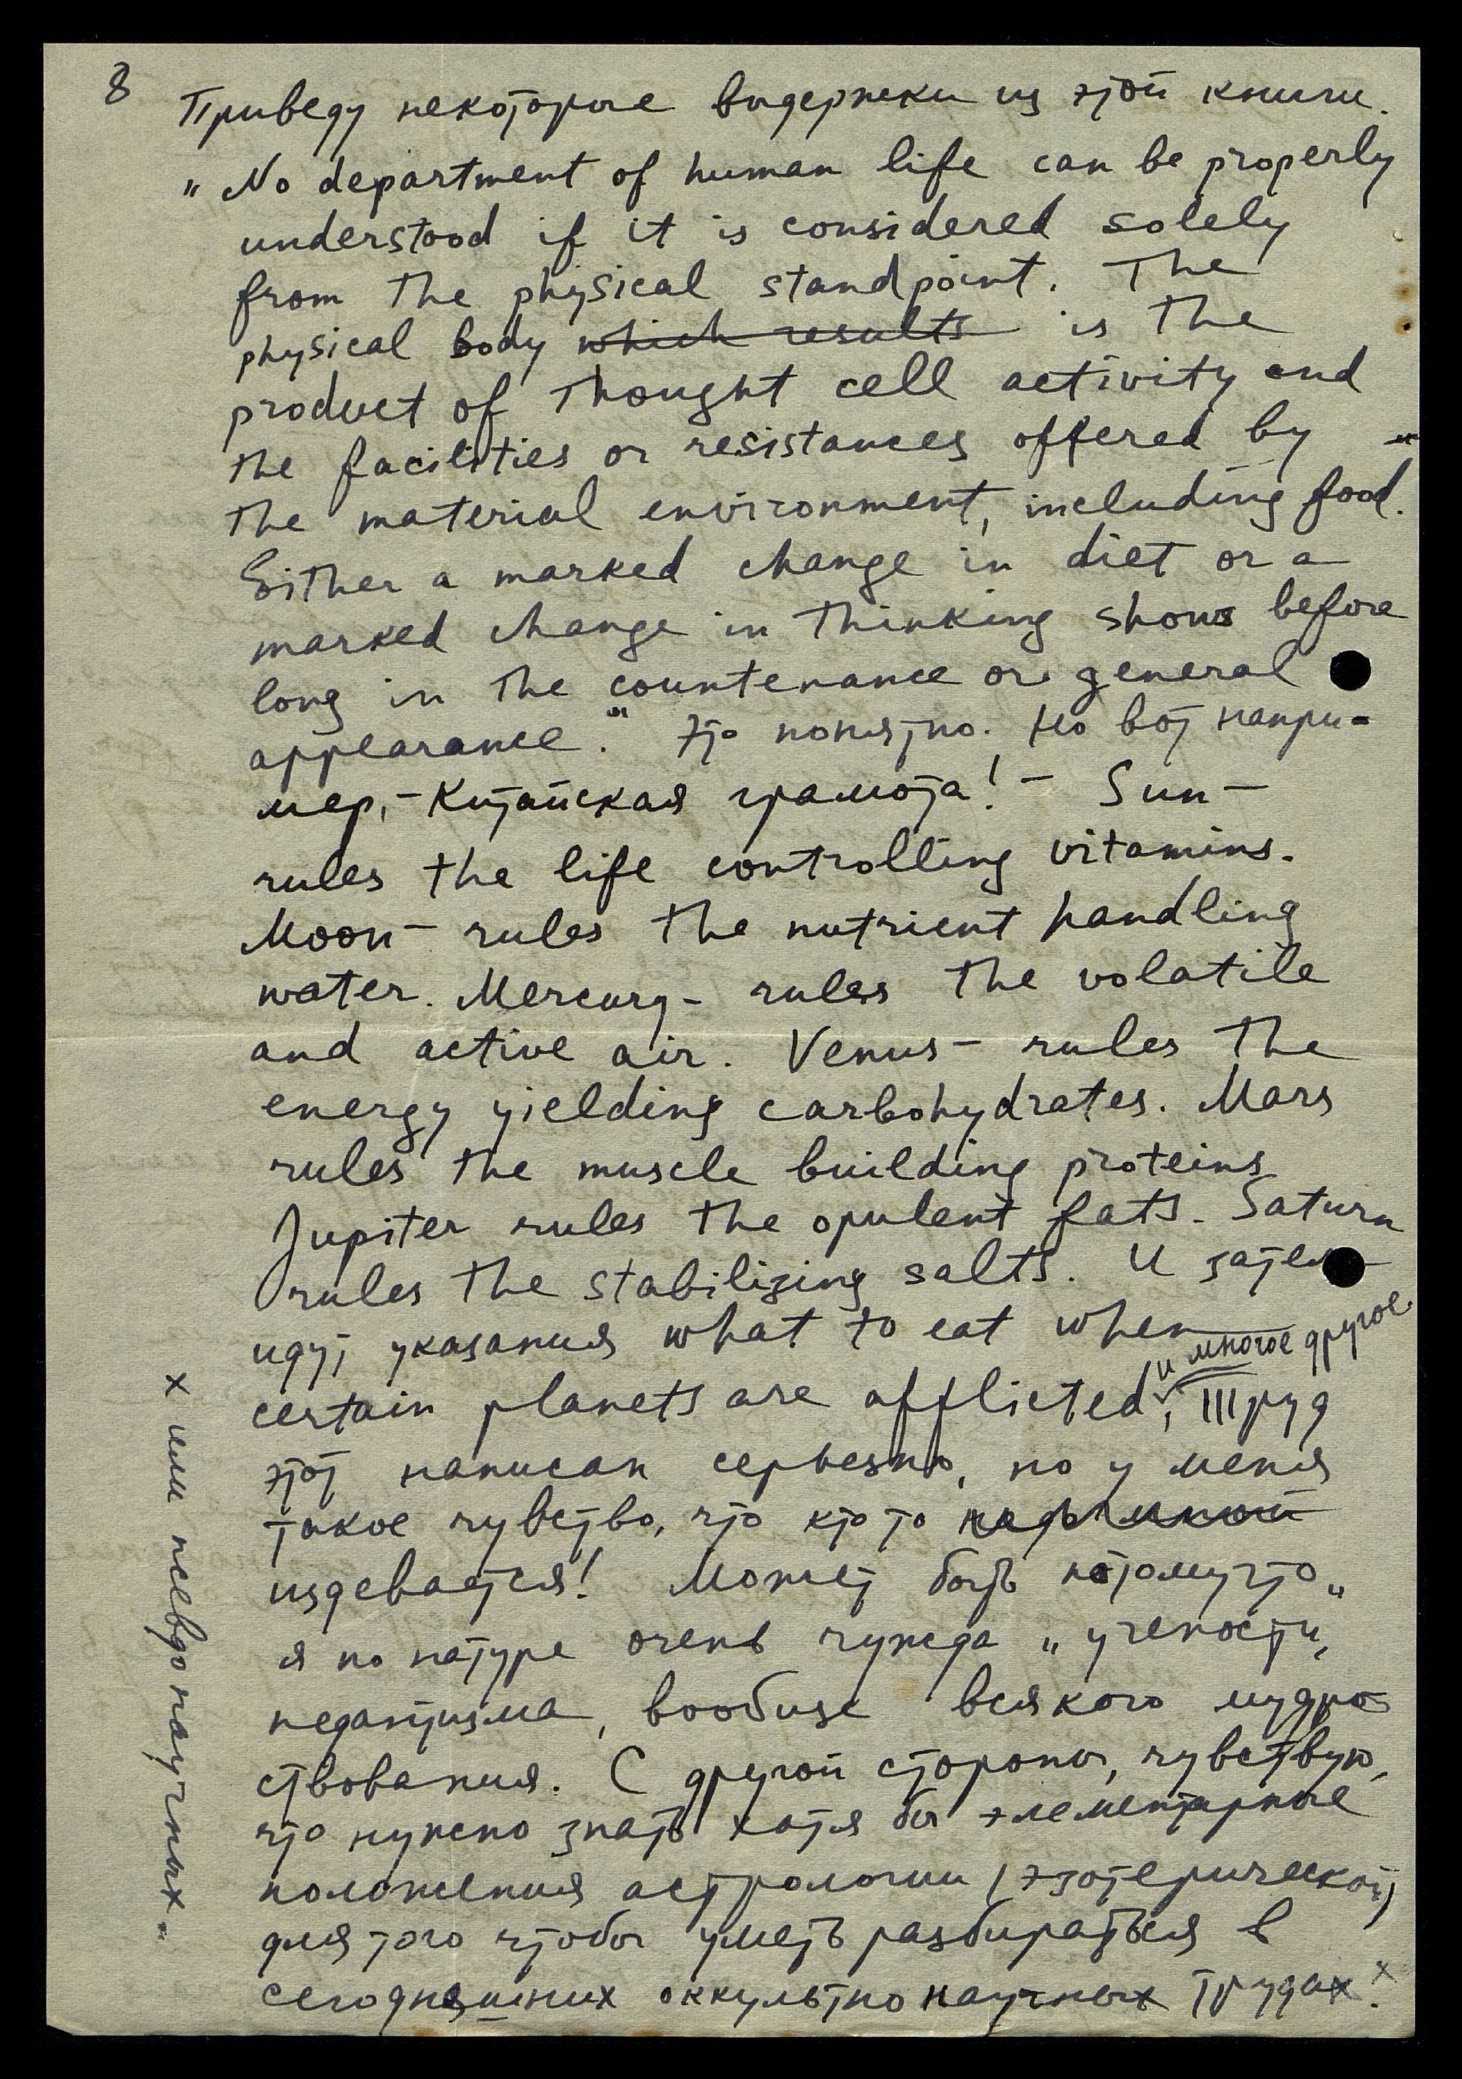 8
Приведу некоторые выдержки из этой книги.
„No department of human life can be properly
understood if it is considered solely
from the physical standpoint. The
physical body which results is the
product of thought cell activity and
the facilities or resistances offered by
the material environment, including food.
Either a marked change in diet or a
marked change in thinking shows before
long in the countenance or general
appearance." Это понятно. Но вот напри-
мер, - Китайская грамота! - Sun -
rules the life controlling vitamins.
Moon - rules the nutrient handling
water. Mercury - rules the volatile
and active air. Venus - rules the
energy yielding carbohydrates. Mars
rules the muscle building proteins
Jupiter rules the opulent fats. Saturn
rules the stabilizing salts. И затем
идут указания what to eat when
и многое другое
certain planets are afflicted, Труд
этот написан серьезно, но у меня
такое чувство, что кто то
издевается! Может быть потому что
я по натуре очень чужда „учености",
педантизма, вообще всякого мудро
ствования. С другой стороны, чувствую,
что нужно знать хотя бы элементарные
положения астрологии (эзотерической)
для того чтобы уметь разбираться в
сегодняшних оккультно научных трудах.x
x или псевдо научных.